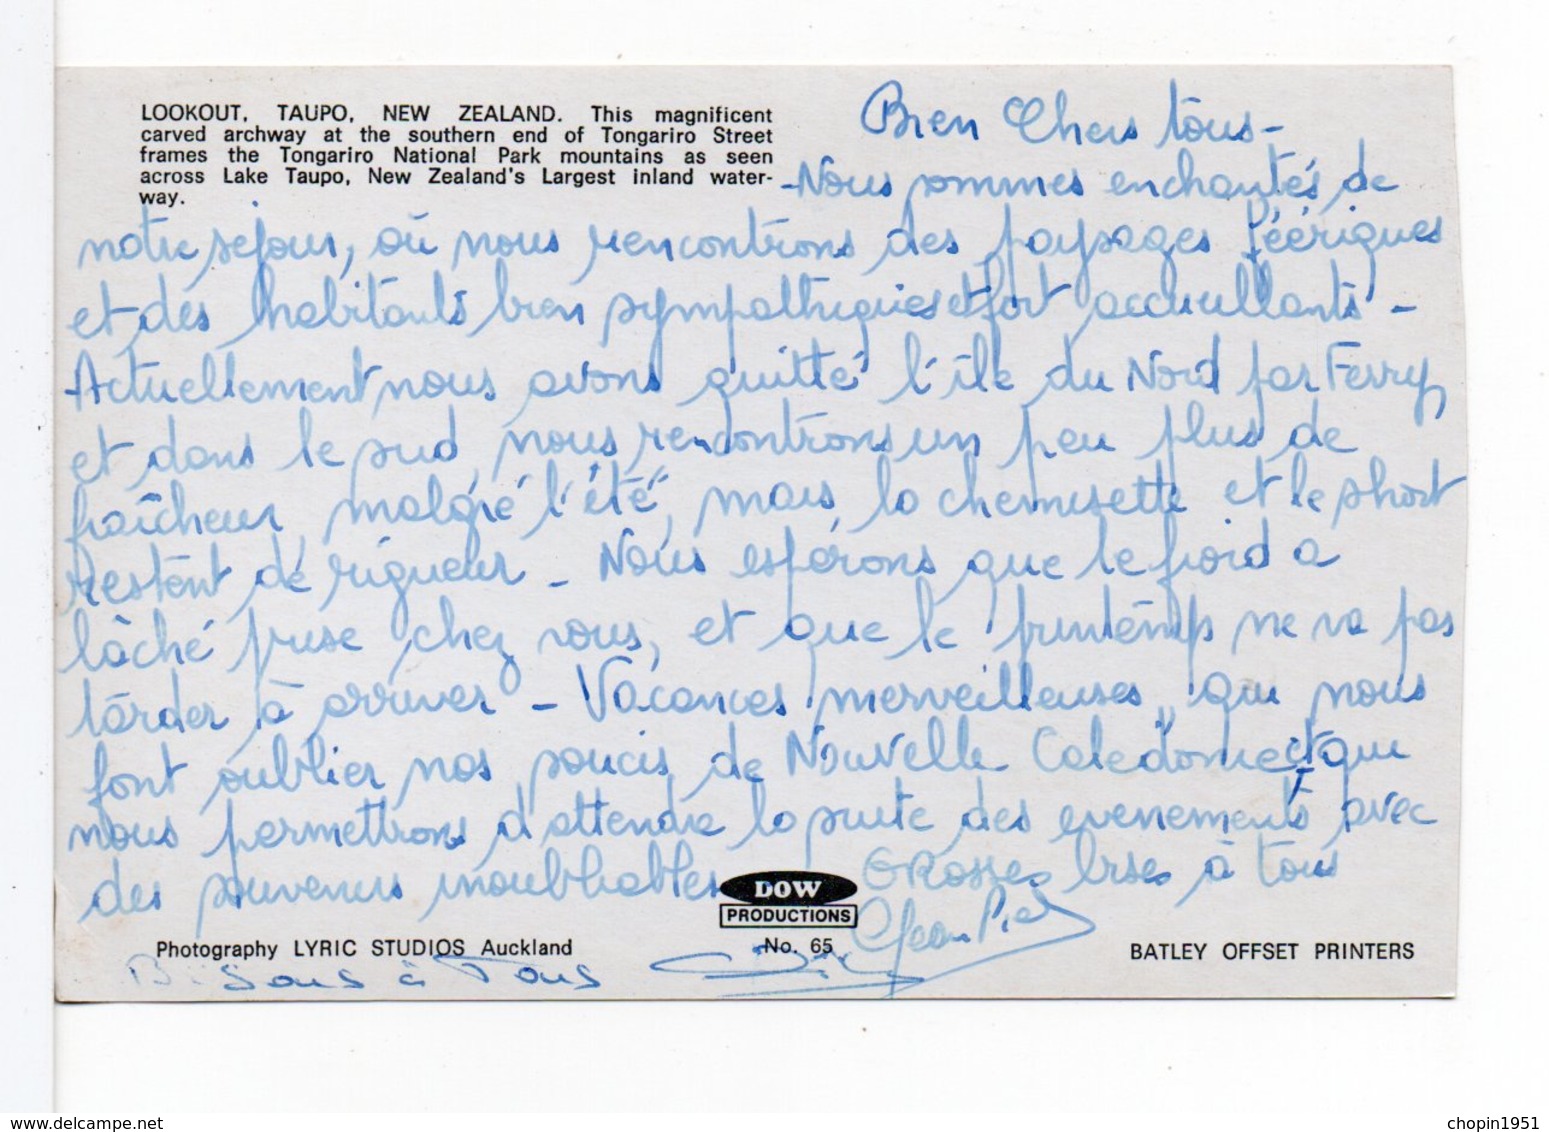 LOOKOUT, TAUPO, NEW ZEALAND. This magnificent
carved archway at the southern end of Tongariro Street
frames the Tongariro National Park mountains as seen
across Lake Taupo, New Zealand's Largest inland water-
way.
Bien Chers tous -
- Nous sommes enchantés de
notre séjour, où nous rencontrons des paysages féériques
et des habitants bien sympathiques et fort accueillants -
Actuellement nous avons quitté l'île du Nord par Ferry,
et dans le sud, nous rencontrons un peu plus de
fraîcheur, malgré l'"été", mais la chemisette et le short
restent de rigueur - Nous espérons que le froid a
lâché prise chez vous, et que le printemps ne va pas
tarder à arriver - Vacances merveilleuses, qui nous
font oublier nos soucis de Nouvelle Calédonie et qui
nous permettrons d'attendre la suite des evenements avec
des souvenirs inoubliables
GRosses bises à tous
Jean Pie
DOW
PRODUCTIONS
No. 65
Photography LYRIC STUDIOS Auckland
BATLEY OFFSET PRINTERS
Bisous à Tous
chopin1951